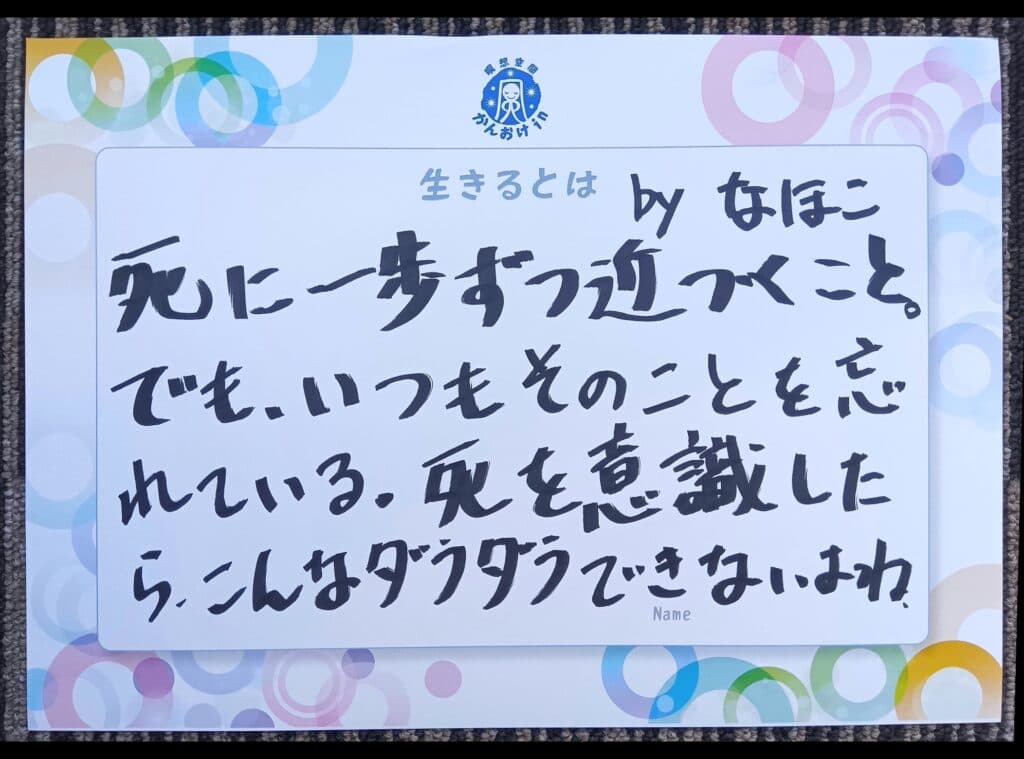 瞑想空間
かんおけin
生きるとは
by なほこ
死に一歩ずつ近づくこと。
でも、いつもそのことを忘
れている。死を意識した
ら、こんなダラダラできないよね、
Name